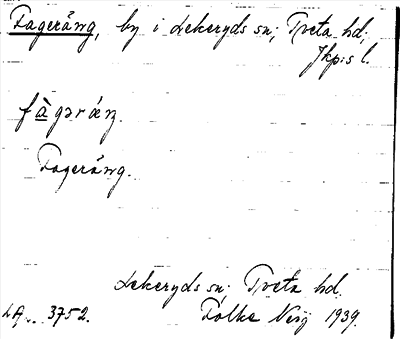 Fageräng, by i Lekeryds sn; Tveta hd;
Jkp:s l.
fàgəräŋ.
Fageräng.
Lekeryds sn; Tveta hd.
LA 3752. Folke 1939.